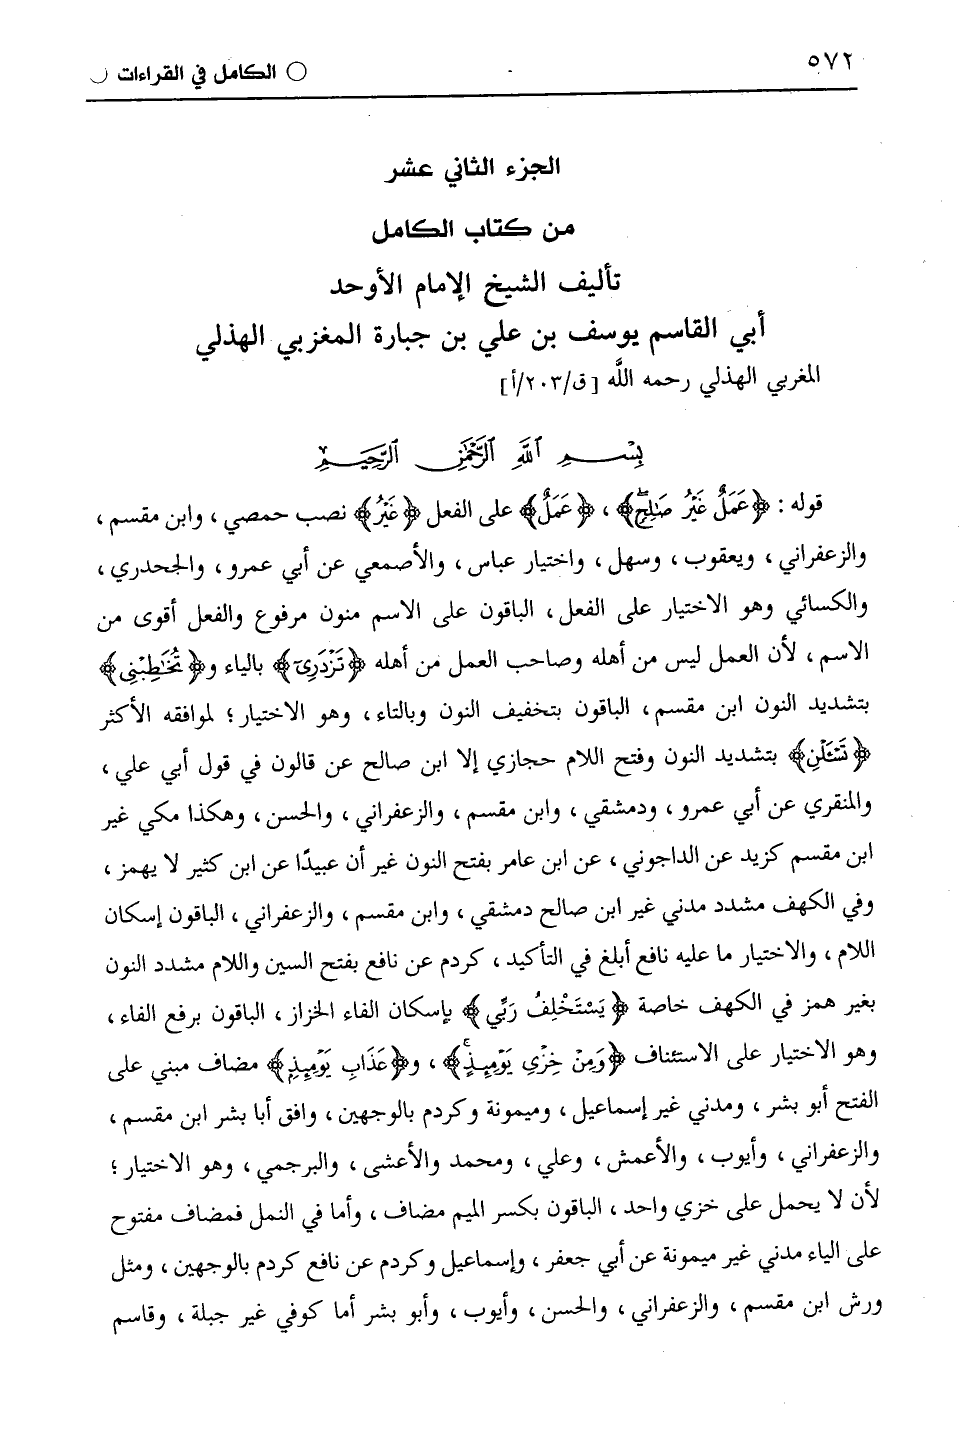 ٥٧٢
الكامل في القراءات
الجزء الثاني عشر
من كتاب الكامل
تأليف الشيخ الإمام الأوحد
أبي القاسم يوسف بن علي بن جبارة المغزبي الهذلي
المغربي الهذلي رحمه اللَّه [ق/٢٠٣/أ]
بِسْمِ اللَّهِ الرَّحْمَٰنِ الرَّحِيمِ
قوله : ﴿عَمَلٌ غَيْرُ صَٰلِحٍ﴾ ، ﴿عَمَلٌ﴾ على الفعل ﴿غَيْرُ﴾ نصب حمصي ، وابن مقسم ،
والزعفراني ، ويعقوب ، وسهل ، واختيار عباس ، والأصمعي عن أبي عمرو ، والجحدري ،
والكسائي وهو الاختيار على الفعل ، الباقون على الاسم منون مرفوع والفعل أقوى من
الاسم ، لأن العمل ليس من أهله وصاحب العمل من أهله ﴿تَزْدَرِىٓ﴾ بالياء و﴿تُخَٰطِبْنِى﴾
بتشديد النون ابن مقسم ، الباقون بتخفيف النون وبالتاء ، وهو الاختيار ؛ لموافقه الأكثر
﴿تَسْـَٔلْنِ﴾ بتشديد النون وفتح اللام حجازي إلا ابن صالح عن قالون في قول أبي علي ،
والمنقري عن أبي عمرو ، ودمشقي ، وابن مقسم ، والزعفراني ، والحسن ، وهكذا مكي غير
ابن مقسم كزيد عن الداجوني ، عن ابن عامر بفتح النون غير أن عبيدًا عن ابن كثير لا يهمز ،
وفي الكهف مشدد مدني غير ابن صالح دمشقي ، وابن مقسم ، والزعفراني ، الباقون إسكان
اللام ، والاختيار ما عليه نافع أبلغ في التأكيد ، كردم عن نافع بفتح السين واللام مشدد النون
بغير همز في الكهف خاصة ﴿يَسْتَخْلِفُ رَبِّي﴾ بإسكان الفاء الخزاز ، الباقون برفع الفاء ،
وهو الاختيار على الاستئناف ﴿وَمِنْ خِزْيِ يَوْمِئِذٍ﴾ ، و﴿عَذَابِ يَوْمِئِذِم﴾ مضاف مبني على
الفتح أبو بشر ، ومدني غير إسماعيل ، وميمونة وكردم بالوجهين ، وافق أبا بشر ابن مقسم ،
والزعفراني ، وأيوب ، والأعمش ، وعلي ، ومحمد والأعشى ، والبرجمي ، وهو الاختيار ؛
لأن لا يحمل على خزي واحد ، الباقون بكسر الميم مضاف ، وأما في النمل فمضاف مفتوح
على الياء مدني غير ميمونة عن أبي جعفر ، وإسماعيل وكردم عن نافع كردم بالوجهين ، ومثل
ورش ابن مقسم ، والزعفراني ، والحسن ، وأيوب ، وأبو بشر أما كوفي غير جبلة ، وقاسم